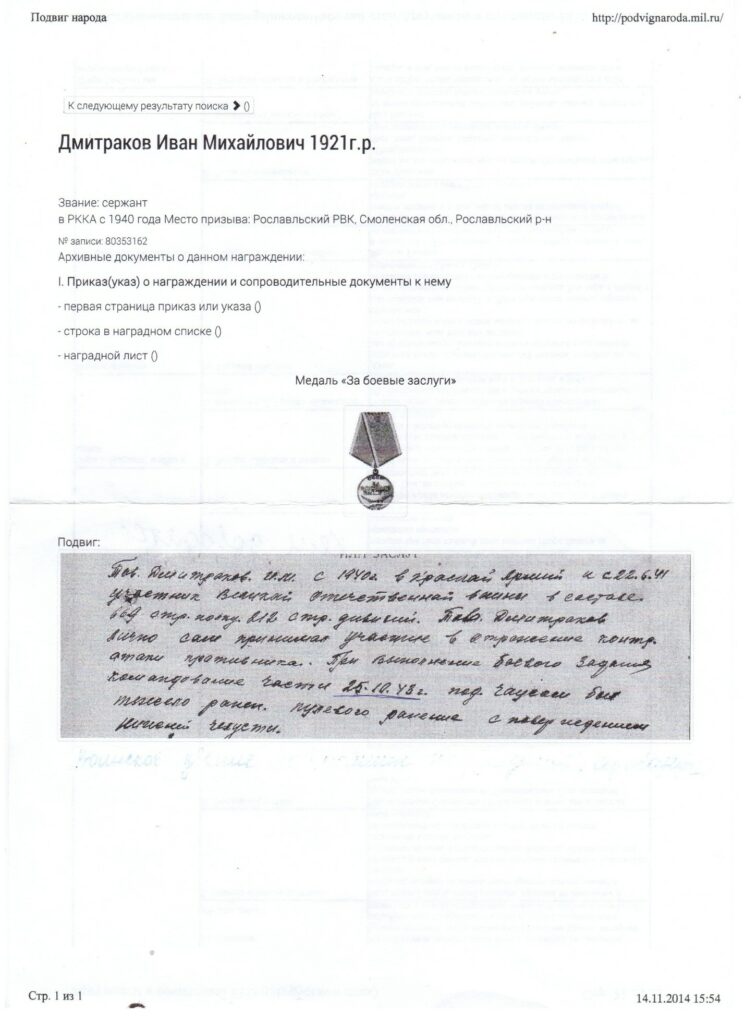 Подвиг народа
http://podvignaroda.mil.ru/
К следующему результату поиска ❯ ()
Дмитраков Иван Михайлович 1921г.р.
Звание: сержант
в РККА с 1940 года Место призыва: Рославльский РВК, Смоленская обл., Рославльский р-н
№ записи: 80353162
Архивные документы о данном награждении:
I. Приказ(указ) о награждении и сопроводительные документы к нему
- первая страница приказ или указа ()
- строка в наградном списке ()
- наградной лист ()
Медаль «За боевые заслуги»
Подвиг:
Тов. Дмитраков И.М. с 1940г. в Красной Армии и с 22.6.41
участник Великой отечественной войны в составе
669 стр. полку 212 стр. дивизии. Тов. Дмитраков
лично сам принимал участие в отражение контр.
атаки противника. При выполнение боевого задания
командование части 25.10.43г. под Чаусам был
тяжело ранен. пулевого ранение с повреждением
нижней челюсти.
Стр. 1 из 1
14.11.2014 15:54